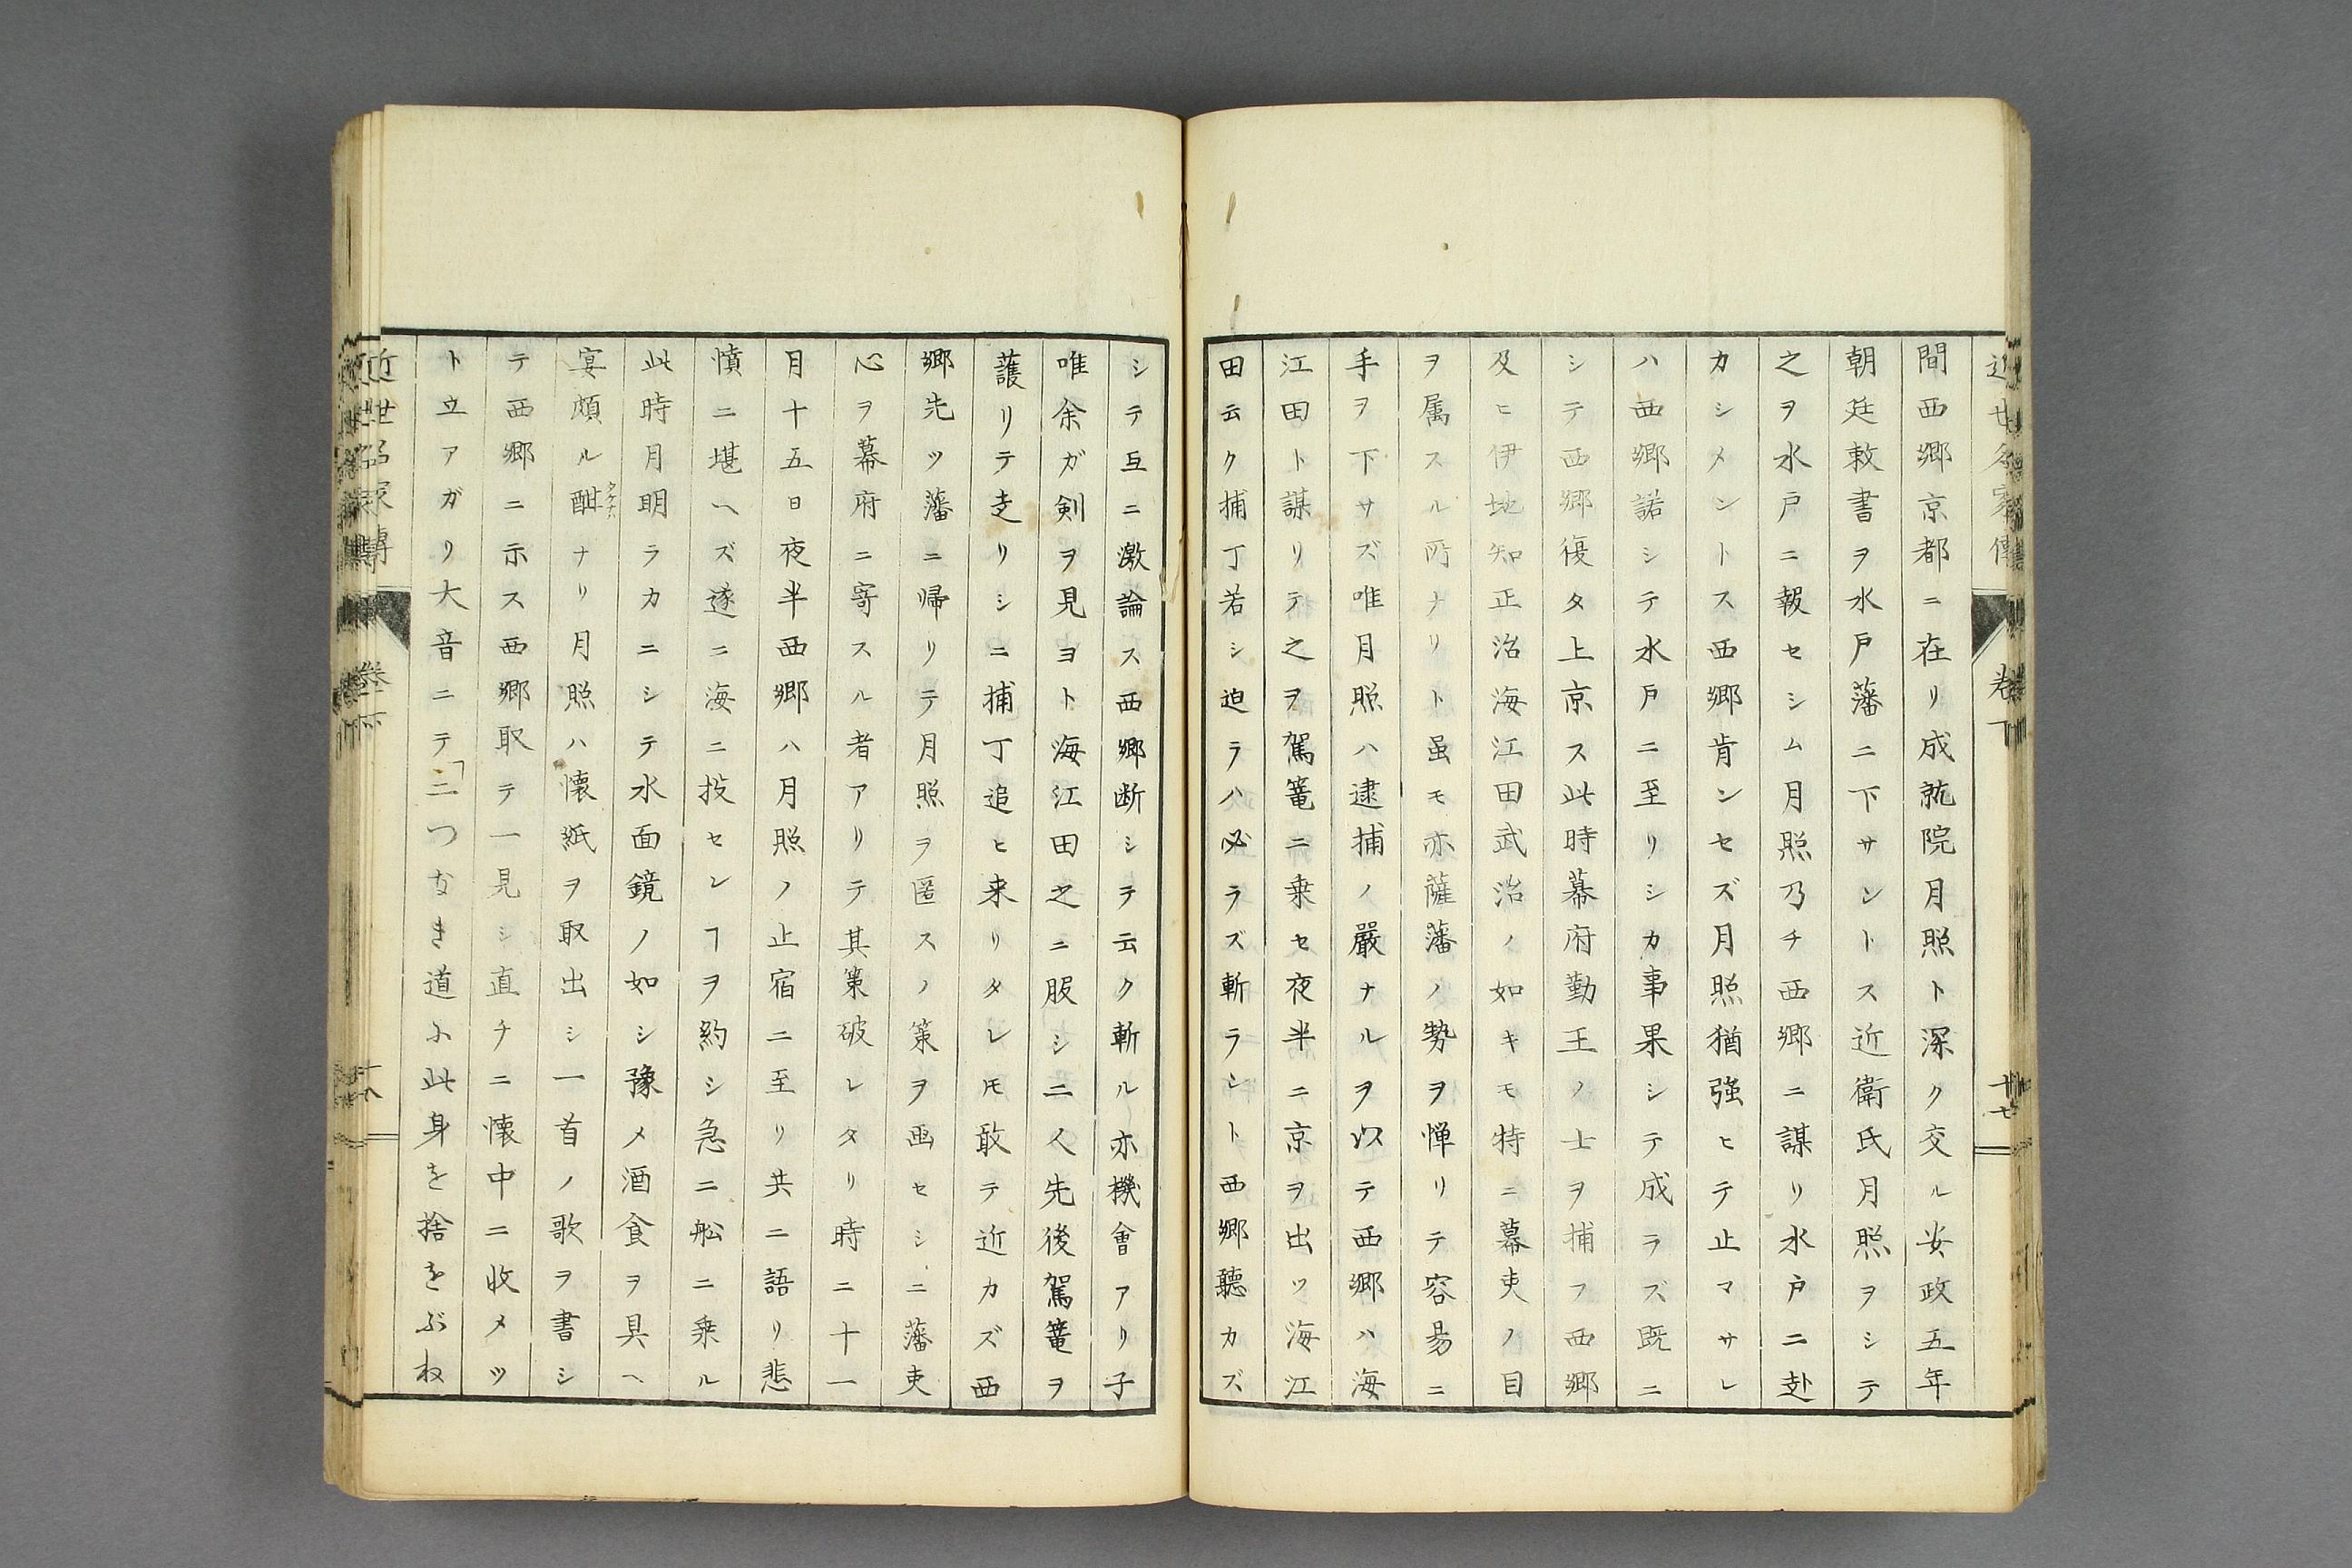 間西郷京都ニ在リ成就院月照ト深ク交ル安政五年
朝廷敕書ヲ水戸藩ニ下サントス近衛氏月照ヲシテ
之ヲ水戸ニ報セシム月照乃チ西郷ニ謀リ水戸ニ赴
カシメントス西郷肯ンセズ月照猶強ヒテ止マサレ
ハ西郷諾シテ水戸ニ至リシカ事果シテ成ラズ既ニ
シテ西郷復タ上京ス此時幕府勤王ノ士ヲ捕フ西郷
及ヒ伊地知正治海江田武治ノ如キモ特ニ幕吏ノ目
ヲ属スル所ナリト虽モ亦薩藩ノ勢ヲ憚リテ容易ニ
手ヲ下サズ唯月照ハ逮捕ノ嚴ナルヲ以テ西郷ハ海
江田ト謀リテ之ヲ駕篭ニ乗セ夜半ニ京ヲ出ツ海江
田云ク捕丁若シ迫ラハ必ラズ斬ラント西郷聽カズ
近世名家傳 卷下 廿七
シテ互ニ激論ス西郷断シテ云ク斬ル亦機會アリ子
唯余ガ剣ヲ見ヨト海江田之ニ服シ二人先後駕篭ヲ
護リテ走リシニ捕丁追ヒ来リタレ𪜈敢テ近カズ西
郷先ツ藩ニ帰リテ月照ヲ匿スノ策ヲ画セシニ藩吏
心ヲ幕府ニ寄スル者アリテ其策破レタリ時ニ十一
月十五日夜半西郷ハ月照ノ止宿ニ至リ共ニ語リ悲
憤ニ堪ヘズ遂ニ海ニ投センヿヲ約シ急ニ舩ニ乗ル
此時月明ラカニシテ水面鏡ノ如シ豫メ酒食ヲ具ヘ
宴頗ル酣ナリ月照ハ懐紙ヲ取出シ一首ノ歌ヲ書シ
テ西郷ニ示ス西郷取テ一見シ直チニ懐中ニ收メツ
ト立アガリ大音ニテ「二つなき道ふ此身を捨をぶね
近世名家傳 卷下